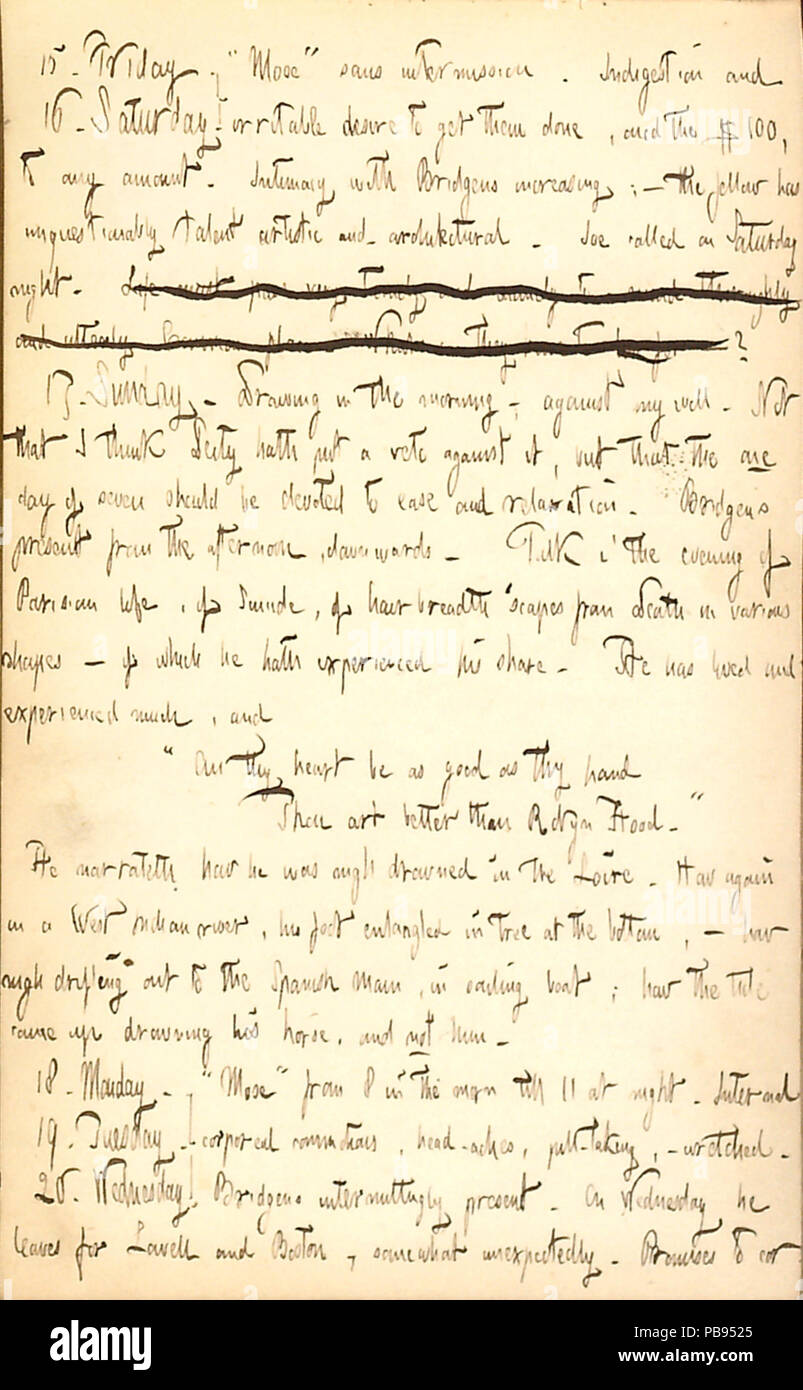 15. Friday. "Mose" sans intermission. Indigestion and
16. Saturday. irritable desire to get them done, and the $100,
to any amount. Intimacy with Bridgens increasing; — the fellow has
unquestionably talent artistic and architektural. Joe called on Saturday
night. Life must very and to thoroughly
and utterly ?
17. Sunday. Drawing in the morning, against my will. Not
that I think Deity hath put a veto against it, but that the one
day of seven should be devoted to ease and relaxation. Bridgens
present from the afternoon, downwards. Talk i' the evening of
Parisian life, of Suicide, of hairbreadth 'scapes from death in various
shapes — of which he hath experienced his share. He has lived and
experienced much, and
"An thy heart be as good as thy hand
Thou art better than Robyn Hood."
He narrateth how he was nigh drowned in the Loire. How again
in a West Indian river, his foot entangled in tree at the bottom, — how
nigh drifting out to the Spanish Main, in sailing boat; how the tide
came up drowning his horse, and not him.
18. Monday. "Mose" from 8 in the morn till 11 at night. Internal
19. Tuesday. corporeal commotions, head-aches, pill-taking, — wretched.
20. Wednesday. Bridgens intermittingly present. On Wednesday he
leaves for Lowell and Boston, somewhat unexpectedly. Promises to cor
alamy
Image ID: PB9525
www.alamy.com